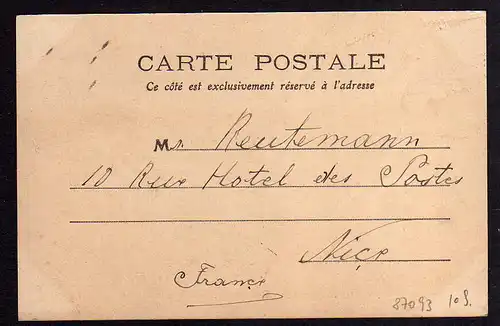 CARTE POSTALE
Ce côté est exclusivement réservé à l'adresse
Mr. Reutemann
10 Rue Hotel des Postes
Nice
France
87093 10 S.